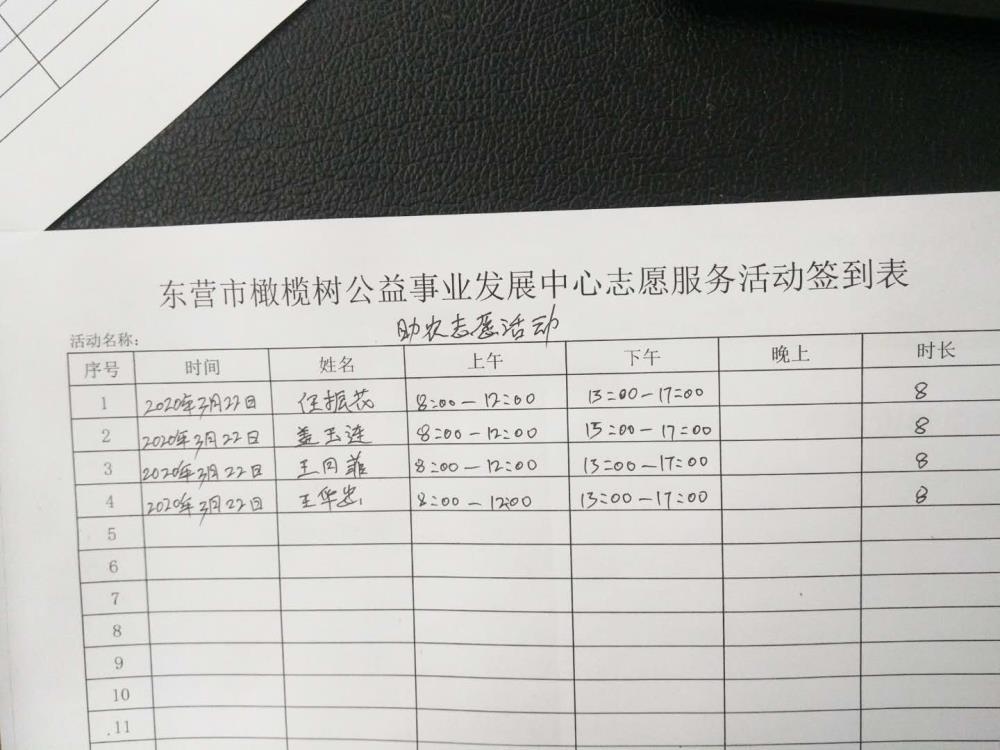 东营市橄榄树公益事业发展中心志愿服务活动签到表
活动名称: 助农志愿活动
序号 时间 姓名 上午 下午 晚上 时长
1 2020年3月22日 任振花 8:00-12:00 13:00-17:00 8
2 2020年3月22日 盖玉连 8:00-12:00 13:00-17:00 8
3 2020年3月22日 王同菲 8:00-12:00 13:00-17:00 8
4 2020年3月22日 王华忠 8:00-12:00 13:00-17:00 8
5
6
7
8
9
10
11